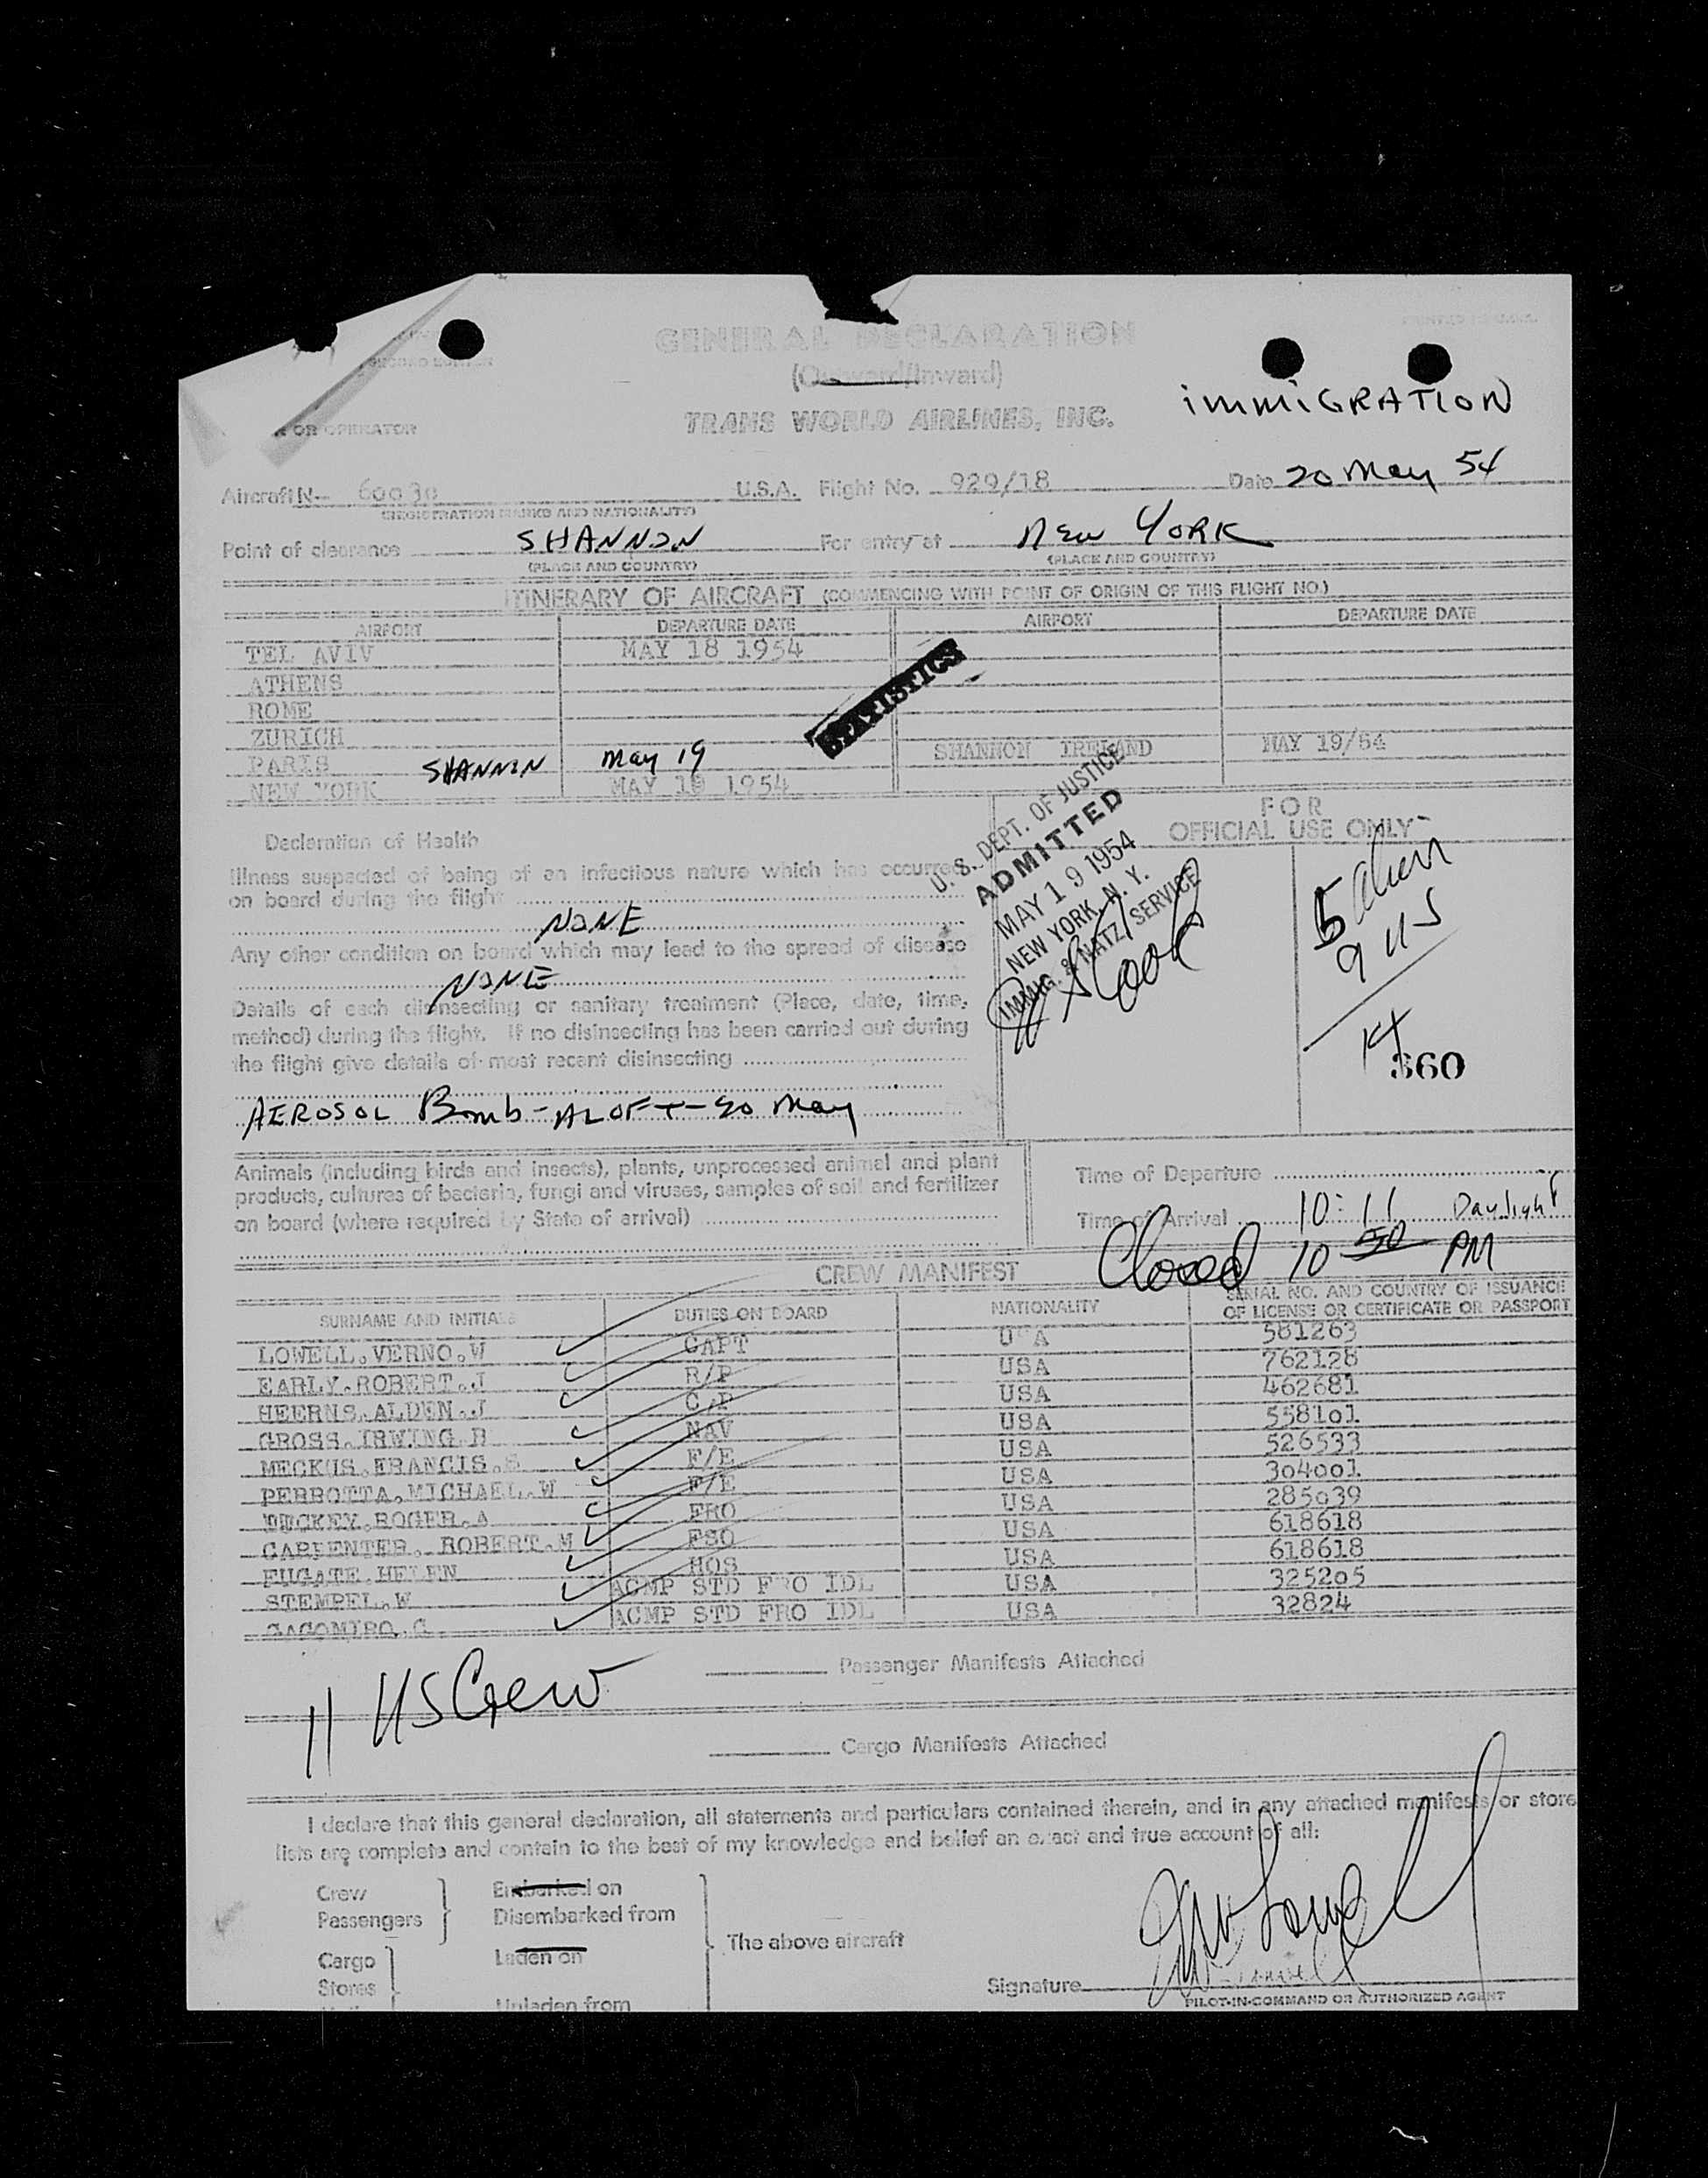 GENERAL DECLARATION
(Outward/Inward)
TRANS WORLD AIRLINES, INC.
immiGRATION
OR OPERATOR
Aircraft N- 60030 U.S.A. Flight No. 929/18 Date 20 May 54
(REGISTRATION MARKS AND NATIONALITY)
Point of clearance SHANNON For entry at New YORK
(PLACE AND COUNTRY) (PLACE AND COUNTRY)
ITINERARY OF AIRCRAFT (COMMENCING WITH POINT OF ORIGIN OF THIS FLIGHT NO.)
AIRPORT DEPARTURE DATE AIRPORT DEPARTURE DATE
TEL AVIV MAY 18 1954
ATHENS
ROME
ZURICH
STATISTICS
PARIS SHANNON May 19 SHANNON IRELAND MAY 19/54
NEW YORK MAY 1954
Declaration of Health
Illness suspected of being of an infectious nature which has occurred
on board during the flight
NONE
Any other condition on board which may lead to the spread of disease
NONE
Details of each disinsecting or sanitary treatment (Place, date, time,
method) during the flight. If no disinsecting has been carried out during
the flight give details of most recent disinsecting
AEROSOL Bomb-ALOFT-20 May
U. S. DEPT. OF JUSTICE
ADMITTED
MAY 19 1954
NEW YORK, N. Y.
IMMIG. & NATZ. SERVICE
FOR
OFFICIAL USE ONLY
5 alien
9 US
14
360
Animals (including birds and insects), plants, unprocessed animal and plant
products, cultures of bacteria, fungi and viruses, samples of soil and fertilizer
on board (where required by State of arrival)
Time of Departure
Time of Arrival 10:11 Daylight
Closed 10 50 PM
CREW MANIFEST
SURNAME AND INITIALS DUTIES ON BOARD NATIONALITY SERIAL NO. AND COUNTRY OF ISSUANCE
OF LICENSE OR CERTIFICATE OR PASSPORT
LOWELL,VERNO.W CAPT USA 581263
EARLY.ROBERT.J R/P USA 762128
HEERNS.ALDEN.J USA 462681
GROSS.IRWING B NAV USA 558101
MECKUS.FRANCIS.S F/E USA 526533
PERROTTA,MICHAEL.W F/E USA 304001
ROGER.A FRO USA 285039
CARPENTER, ROBERT.M FSO USA 618618
FUGATE HELEN HOS USA 618618
STEMPEL.W ACMP STD FRO IDL USA 325205
ACMP STD FRO IDL USA 32824
11 US Crew
Passenger Manifests Attached
Cargo Manifests Attached
I declare that this general declaration, all statements and particulars contained therein, and in any attached manifests or store
lists are complete and contain to the best of my knowledge and belief an exact and true account of all:
Crew Embarked on
Passengers Disembarked from
The above aircraft
Cargo Laden on
Stores
Unladen from
Signature
PILOT-IN-COMMAND OR AUTHORIZED AGENT